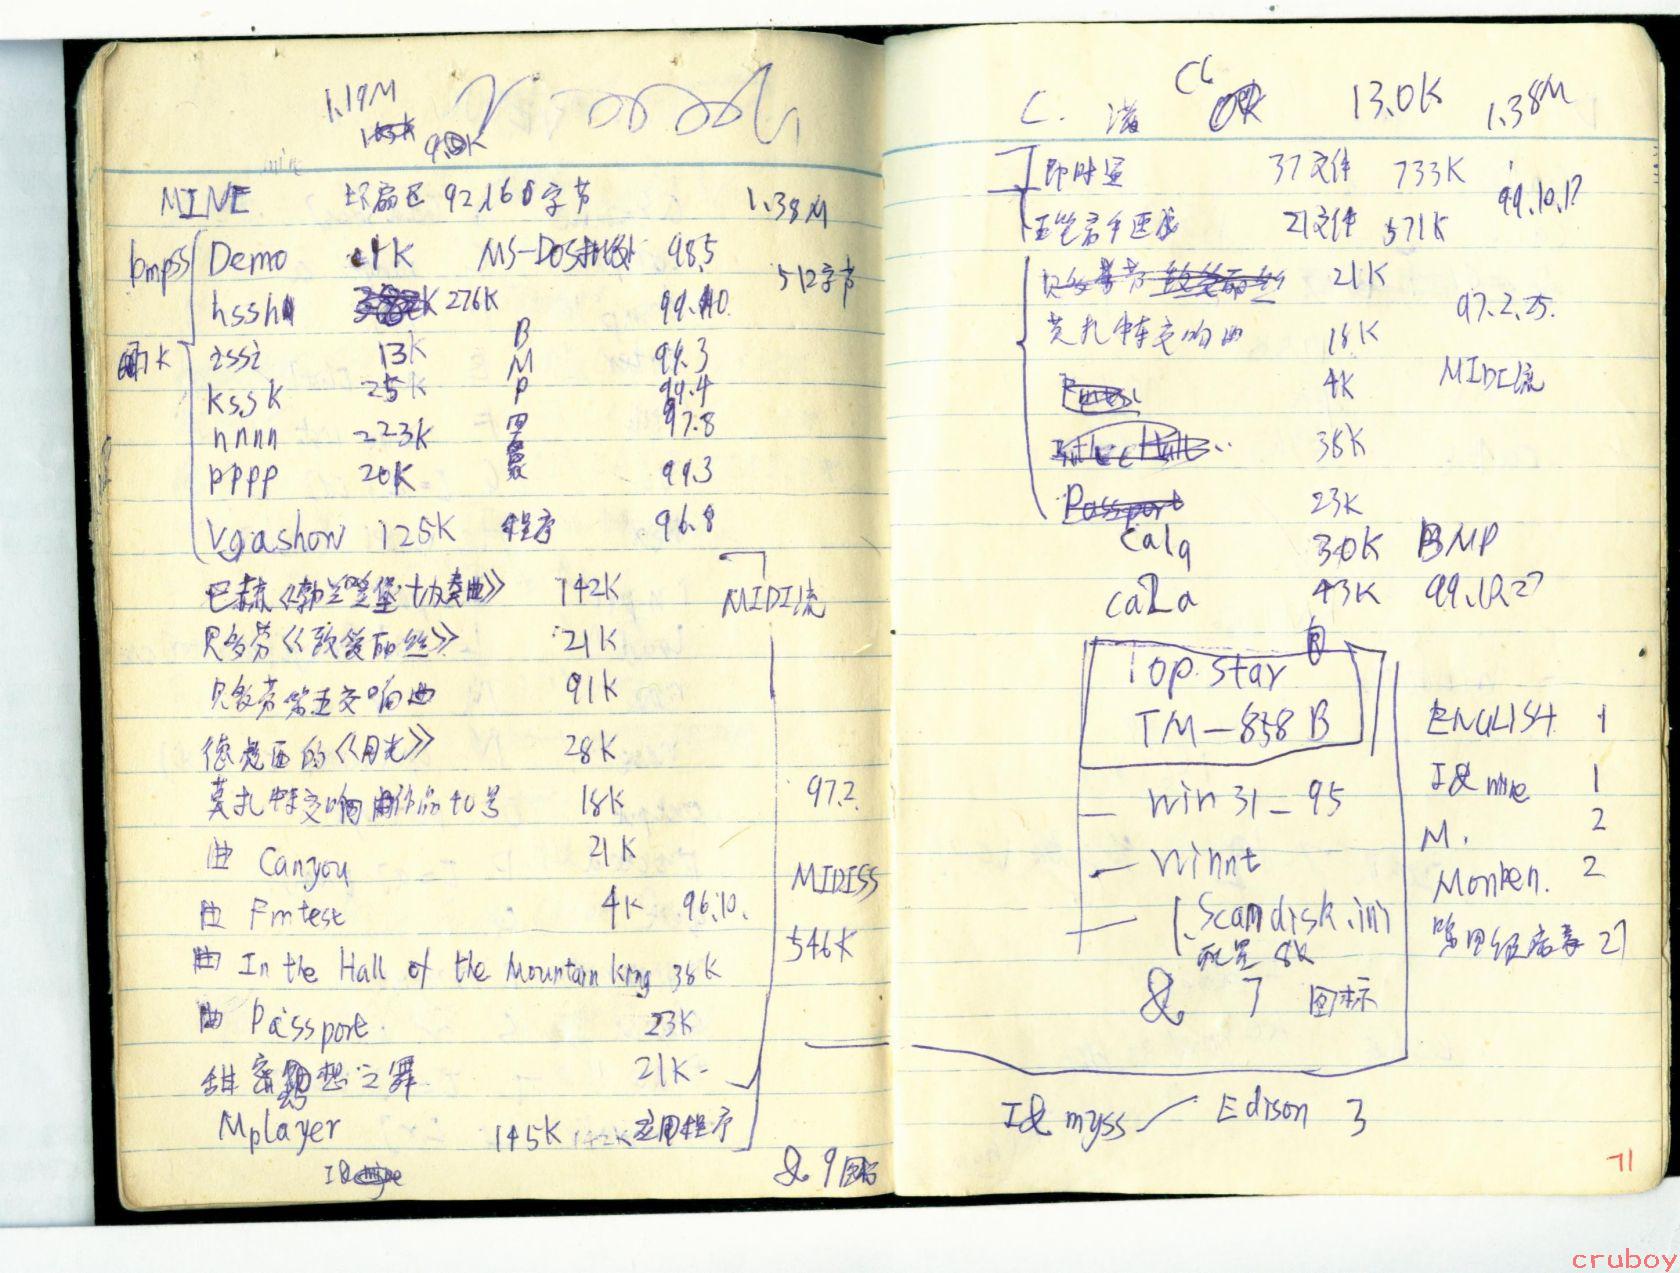 1.19M
90K
MINE 坏扇区 92160字节 1.38M
bmpss Demo 4K MS-DOS 98.5
512字节
hssh 276K 99.10.
zssz 13K B 99.3
kssk 25K M 99.4
nnnn 223K P 97.8
pppp 20K 图象 99.3
Vgashow 125K 程序 96.8
巴赫《勃兰登堡协奏曲》 142K MIDI流
贝多芬《致爱丽丝》 21K
贝多芬第五交响曲 91K
德彪西的《月光》 28K
莫扎特交响曲作品40号 18K 97.2.
曲 Canyou 21K
MIDISS
曲 Fmtest 4K 96.10.
546K
曲 In the Hall of the Mountain King 38K
曲 Passport. 23K
甜蜜梦想之舞 21K
Mplayer 145K 142K 应用程序
I&
& 9 图标
C. OK 13.0K 1.38M
即时 37文件 733K 99.10.17
21文件 571K
贝多芬 致爱丽丝 21K
97.2.25.
莫扎特交响曲 18K
Fmtest 4K MIDI流
In the Hall.. 38K
Passport 23K
calq 30K BMP
cala 43K 99.10.27
Top.star
TM-858B
win31-95
winnt
Scandisk.ini
配置 8K
& 7 图标
ENGLISH 1
I& mine 1
M. 2
Monken. 2
病毒 27
I& myss Edison 3
71
cruboy